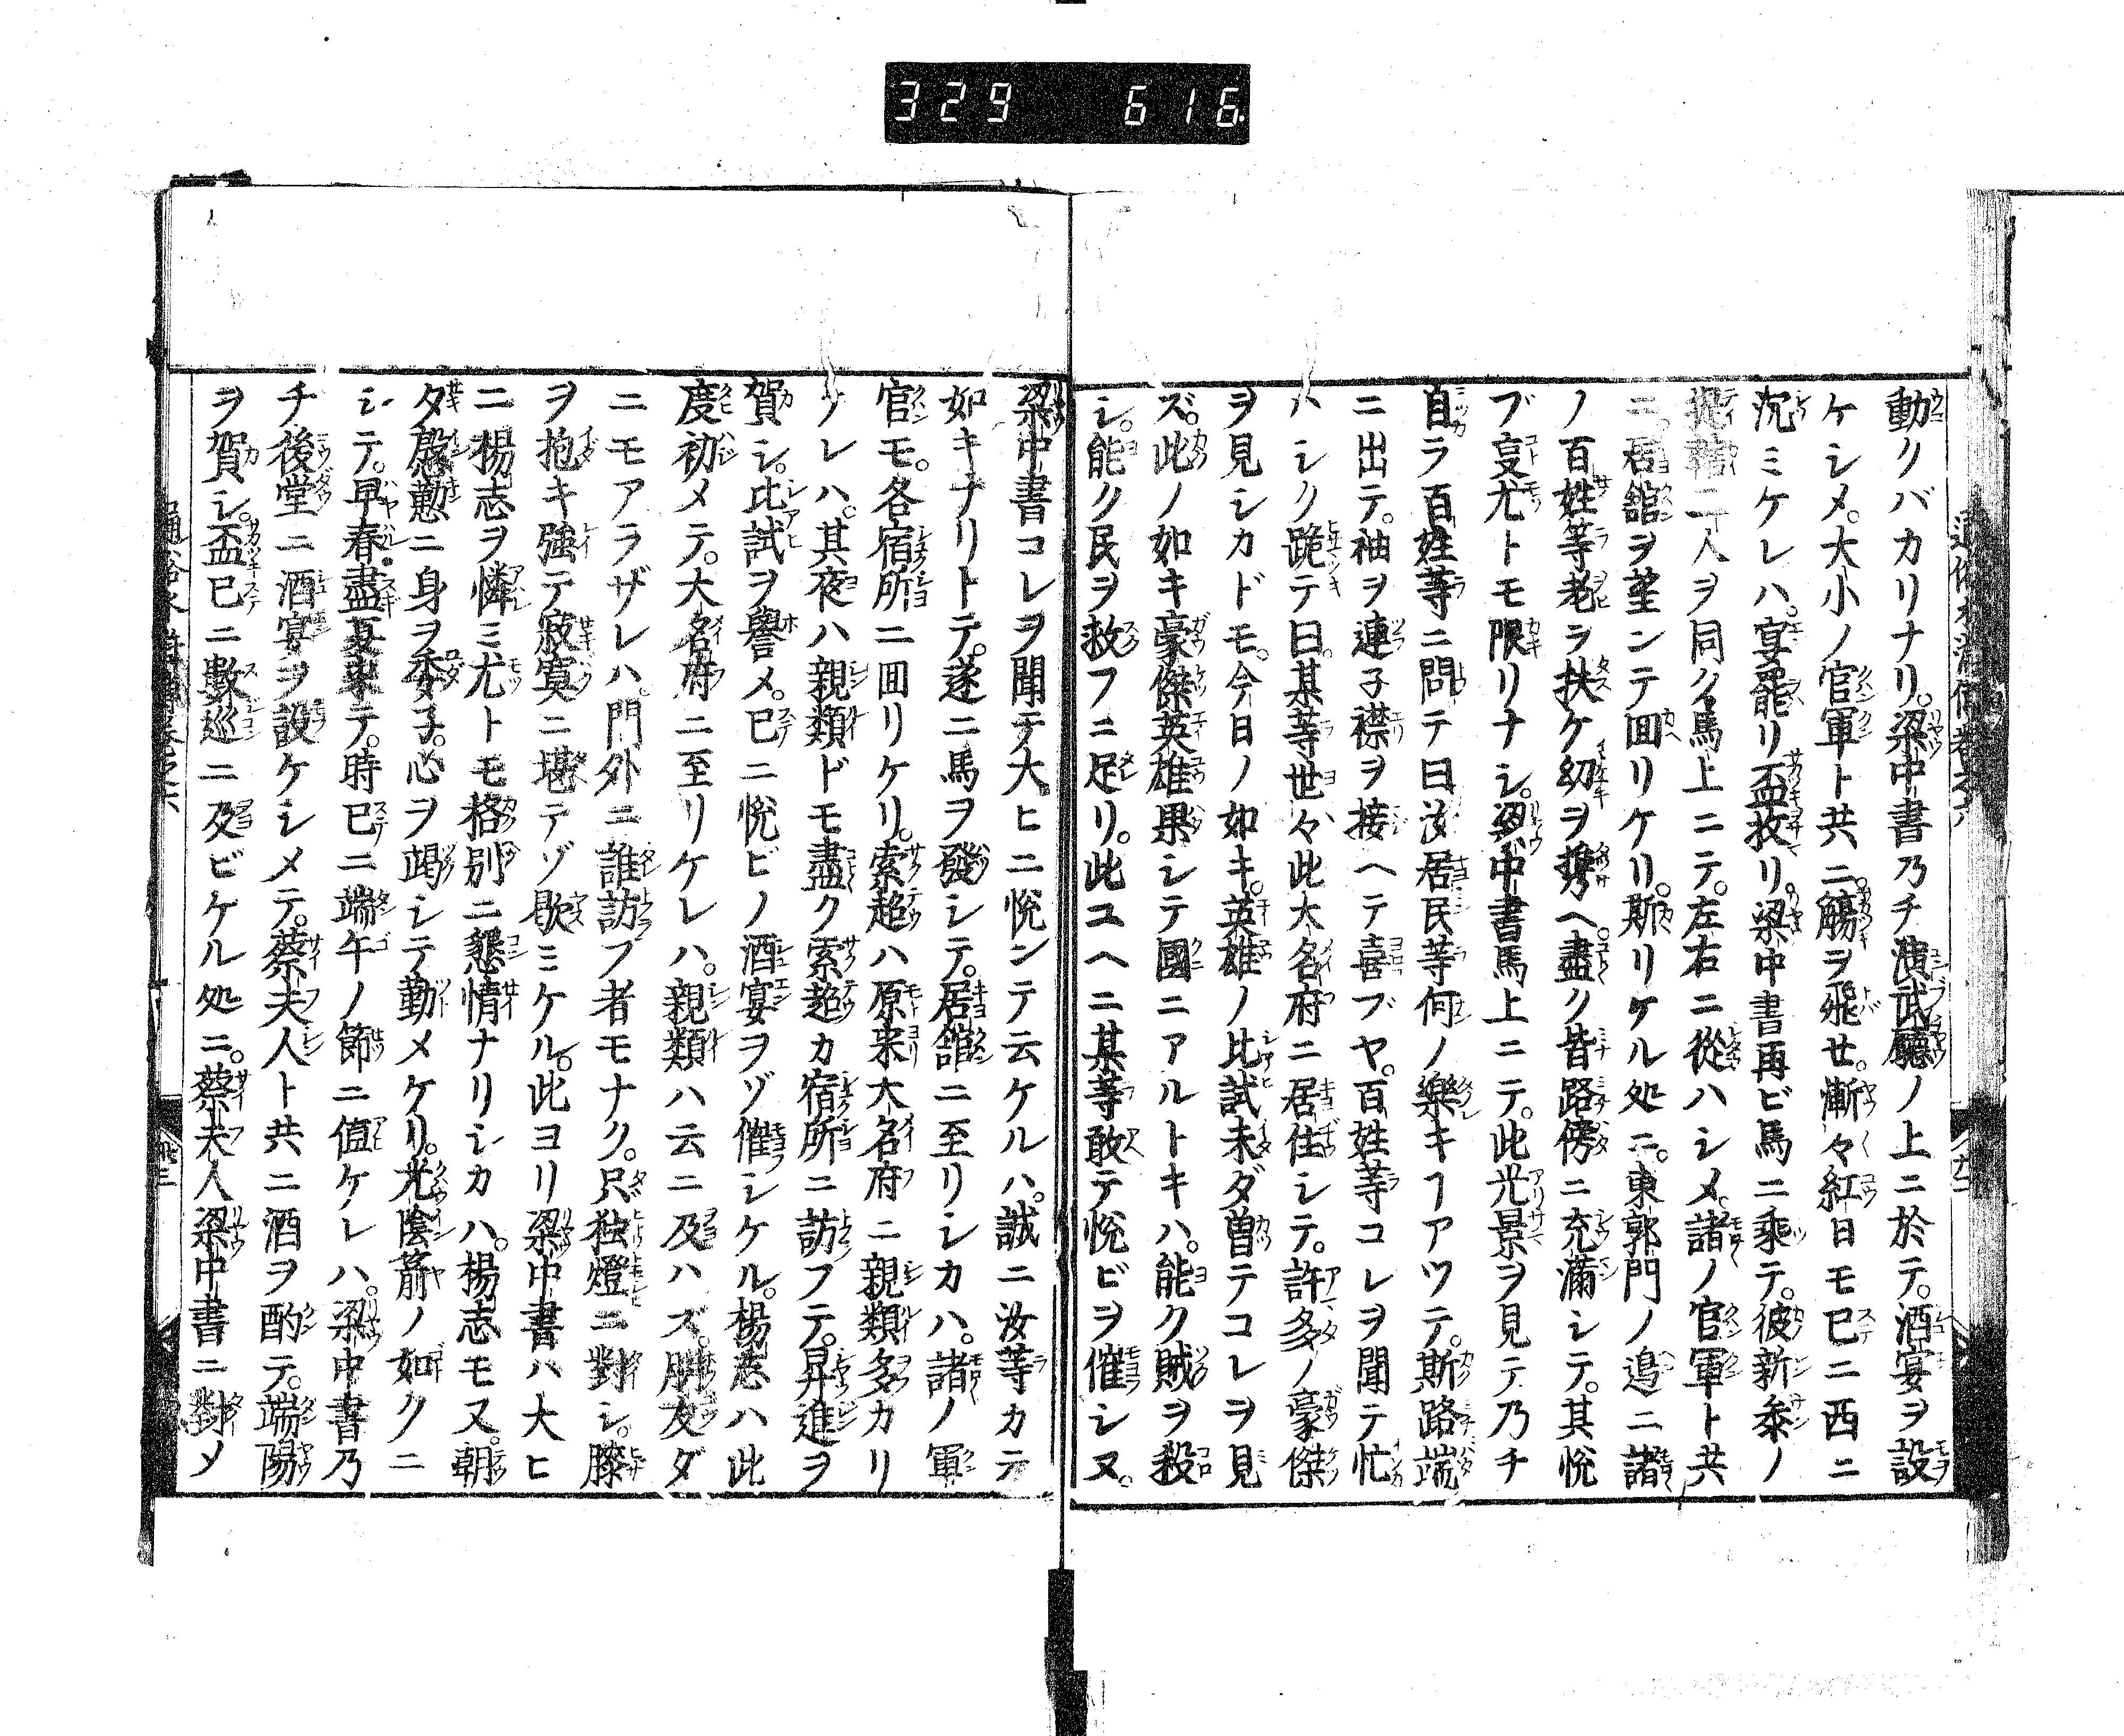 329 616
動クバカリナリ。梁中書乃チ演武廳ノ上ニ於テ。酒宴ヲ設
ケシメ。大小ノ官軍ト共ニ。觴ヲ飛セ。漸々紅日モ已ニ西ニ
沉ミケレハ。宴罷リ盃收リ。梁中書再ビ馬ニ乘テ。彼新參ノ
提轄二人ヲ同ク馬上ニテ。左右ニ從ハシメ。諸ノ官軍ト共
ニ。居舘ヲ望ンテ回リケリ。斯リケル処ニ。東郭門ノ邉ニ諸
ノ百姓等老ヲ扶ケ幼ヲ携ヘ。盡ク皆路傍ニ充滿シテ。其悅
ブ㕝尤トモ限リナシ。梁中書馬上ニテ。此光景ヲ見テ乃チ
自ラ百姓等ニ問テ曰汝居民等何ノ樂キヿアツテ。斯路端
ニ出テ。袖ヲ連子襟ヲ接ヘテ喜ブヤ。百姓等コレヲ聞テ忙
ハシク跪テ曰。某等世々此大名府ニ居住シテ。許多ノ豪傑
ヲ見シカドモ。今日ノ如キ。英雄ノ比試未ダ曽テコレヲ見
ズ。此ノ如キ豪傑英雄果シテ國ニアルトキハ。能ク賊ヲ殺
シ。能ク民ヲ救フニ足リ。此ユヘニ某等敢テ悅ビヲ催シヌ。
梁中書コレヲ聞テ大ヒニ悅ンテ云ケルハ。誠ニ汝等カテ
如キナリトテ。遂ニ馬ヲ發シテ。居舘ニ至リシカハ。諸ノ軍
官モ。各宿所ニ回リケリ。索超ハ原来大名府ニ親類多カリ
ケレハ。其夜ハ親類ドモ盡ク索超カ宿所ニ訪フテ。昇進ヲ
賀シ。比試ヲ譽メ。已ニ悅ビノ酒宴ヲゾ催シケル。楊志ハ此
度初メテ。大名府ニ至リケレハ。親類ハ云ニ及ハズ。朋友ダ
ニモアラザレハ。門外ニ誰訪フ者モナク。只独燈ニ對シ。膝
ヲ抱キ強テ寂寞ニ堪テゾ歇ミケル。此ヨリ梁中書ハ大ヒ
ニ楊志ヲ憐ミ尤トモ格別ニ懇情ナリシカハ。楊志モ又。朝
夕慇懃ニ身ヲ委子。心ヲ竭シテ勤メケリ。光陰箭ノ如クニ
シテ。早春盡夏来テ。時已ニ端午ノ節ニ值ケレハ。梁中書乃
チ後堂ニ酒宴ヲ設ケシメテ。蔡夫人ト共ニ酒ヲ酌テ。端陽
ヲ賀シ。盃已ニ數巡ニ及ビケル処ニ。蔡夫人梁中書ニ對メ